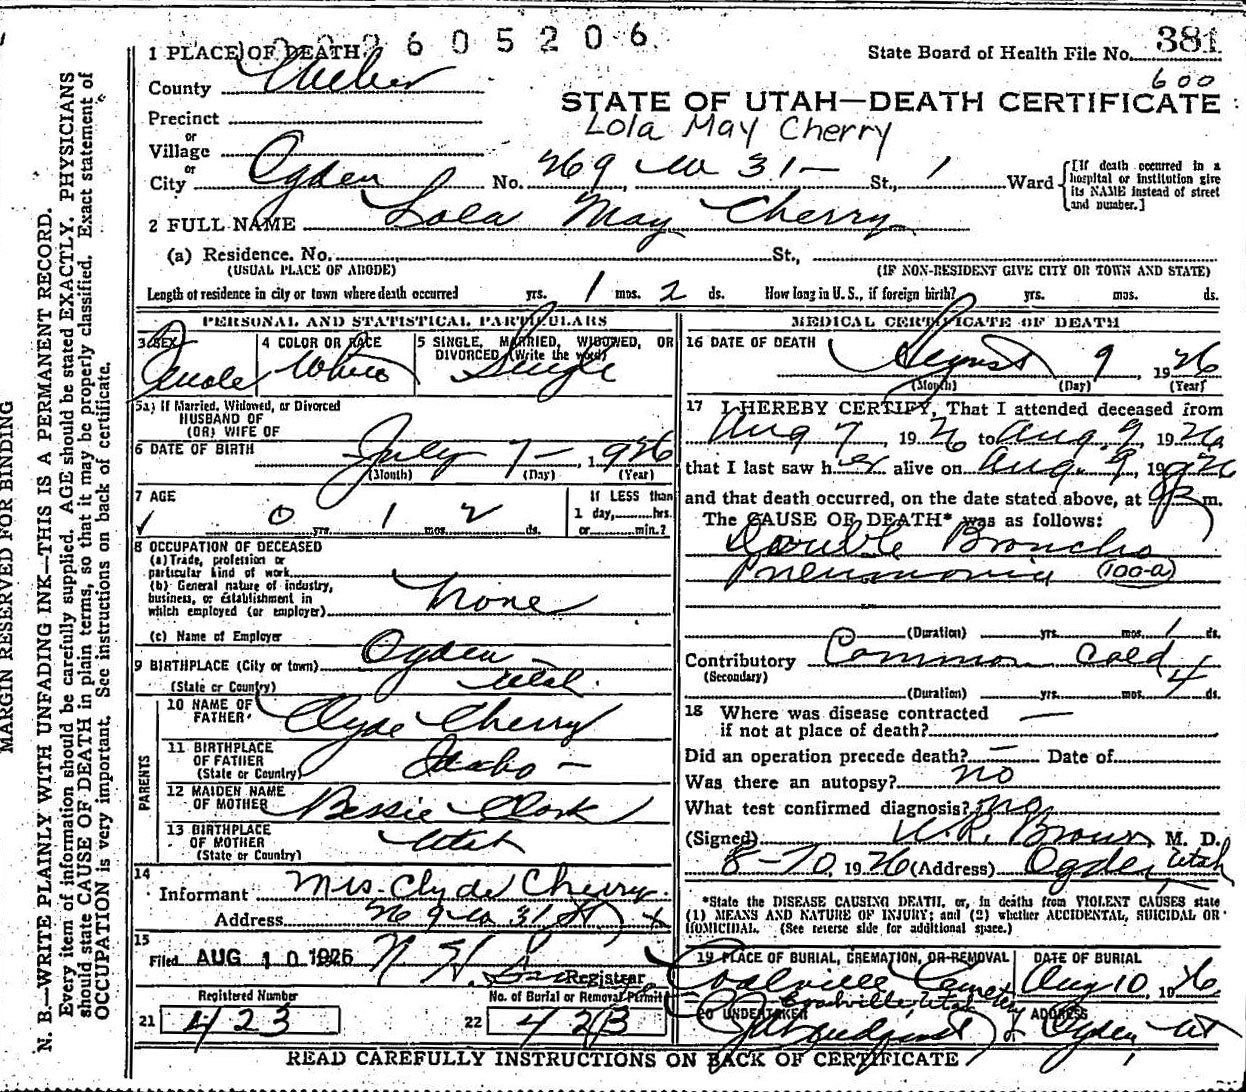 2605206
1 PLACE OF DEATH
State Board of Health File No. 381
600
County Weber
STATE OF UTAH—DEATH CERTIFICATE
Precinct
Lola May Cherry
or
Village
or
City Ogden No. 269 W 31 — St., 1 Ward
[If death occurred in a
hospital or institution give
its NAME instead of street
and number.]
2 FULL NAME Lola May Cherry
(a) Residence. No. St.,
(USUAL PLACE OF ABODE) (IF NON-RESIDENT GIVE CITY OR TOWN AND STATE)
Length of residence in city or town where death occurred yrs. 1 mos. 2 ds. How long in U. S., if foreign birth? yrs. mos. ds.
PERSONAL AND STATISTICAL PARTICULARS
3 SEX
Female
4 COLOR OR RACE
White
5 SINGLE, MARRIED, WIDOWED, OR
DIVORCED (Write the word)
Single
5a) If Married, Widowed, or Divorced
HUSBAND OF
(OR) WIFE OF
6 DATE OF BIRTH July 7 — 1926
(Month) (Day) (Year)
7 AGE
0 yrs. 1 mos. 2 ds.
If LESS than
1 day, hrs.
or min.?
8 OCCUPATION OF DECEASED
(a) Trade, profession or
particular kind of work
(b) General nature of industry,
business, or establishment in
which employed (or employer) None
(c) Name of Employer
9 BIRTHPLACE (City or town) Ogden
(State or Country) Utah.
PARENTS
10 NAME OF
FATHER Clyde Cherry
11 BIRTHPLACE
OF FATHER
(State or Country) Idaho —
12 MAIDEN NAME
OF MOTHER Bessie Clark
13 BIRTHPLACE
OF MOTHER
(State or Country) Utah
14
Informant Mrs. Clyde Cherry.
Address 269 W 31 St X
15
Filed AUG 10 1926
Registrar
Registered Number
21 423
No. of Burial or Removal Permit
22 423
MEDICAL CERTIFICATE OF DEATH
16 DATE OF DEATH August 9, 1926
(Month) (Day) (Year)
17 I HEREBY CERTIFY, That I attended deceased from
Aug 7, 1926 to Aug. 9, 1926
that I last saw her alive on Aug. 9, 1926
and that death occurred, on the date stated above, at m.
The CAUSE OF DEATH* was as follows:
Double Broncho
Pneumonia (100-a)
(Duration) yrs. mos. 1 ds.
Contributory Common Cold
(Secondary)
(Duration) yrs. mos. 4 ds.
18 Where was disease contracted
if not at place of death? —
Did an operation precede death? — Date of
Was there an autopsy? no
What test confirmed diagnosis? no
(Signed) W. R. Brown, M. D.
8-10, 1926 (Address) Ogden, Utah
*State the DISEASE CAUSING DEATH, or, in deaths from VIOLENT CAUSES state
(1) MEANS AND NATURE OF INJURY; and (2) whether ACCIDENTAL, SUICIDAL OR
HOMICIDAL. (See reverse side for additional space.)
19 PLACE OF BURIAL, CREMATION, OR REMOVAL
Coalville Cemetery
Coalville, Utah
DATE OF BURIAL
Aug 10, 1926
20 UNDERTAKER
ADDRESS
Ogden Ut
READ CAREFULLY INSTRUCTIONS ON BACK OF CERTIFICATE
MARGIN RESERVED FOR BINDING
N. B.—WRITE PLAINLY WITH UNFADING INK—THIS IS A PERMANENT RECORD.
Every item of information should be carefully supplied. AGE should be stated EXACTLY. PHYSICIANS
should state CAUSE OF DEATH in plain terms, so that it may be properly classified. Exact statement of
OCCUPATION is very important. See instructions on back of certificate.